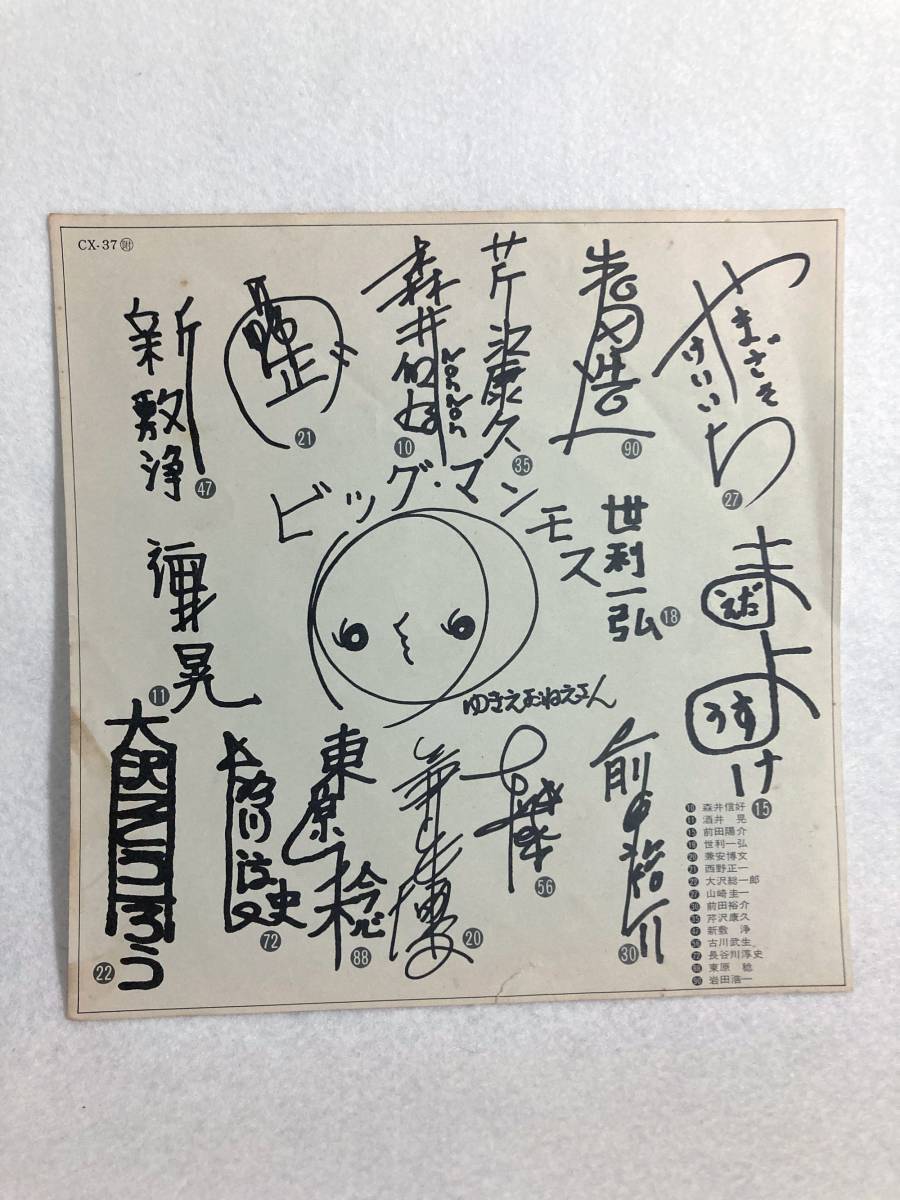 CX-37 附
やまざき
けいいち
27
90
芹沢康久
35
森井信好
10
21
新敷浄
47
ビッグ・マンモス
世利一弘
18
まえだ
ようすけ
15
酒井晃
11
ゆきえおねえさん
大沢そういちろう
22
長谷川淳史
72
東原稔
88
20
56
前田裕介
30
10 森井信好
11 酒井 晃
15 前田陽介
18 世利一弘
20 兼安博文
21 西野正一
22 大沢総一郎
27 山崎圭一
30 前田裕介
35 芹沢康久
47 新敷 浄
56 古川武生
72 長谷川淳史
88 東原 稔
90 岩田浩一